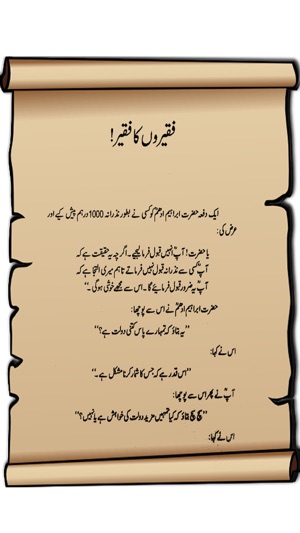 فقیروں کا فقیر!
ایک دفعہ حضرت ابراہیم ادھمؒ کو کسی نے بطور نذرانہ 1000 درہم پیش کیے اور
عرض کی:
یا حضرت! آپؒ انہیں قبول فرما لیجیے۔ اگرچہ یہ حقیقت ہے کہ
آپؒ کسی سے نذرانہ قبول نہیں فرماتے تاہم میری التجا ہے کہ
آپؒ یہ ضرور قبول فرمائیے گا۔ اس سے مجھے خوشی ہوگی۔"
حضرت ابراہیم ادھمؒ نے اس سے پوچھا:
"یہ بتاؤ کہ تمہارے پاس کتنی دولت ہے؟"
اس نے کہا:
"اس قدر ہے کہ جس کا شمار کرنا مشکل ہے۔"
آپؒ نے پھر اس سے پوچھا:
"سچ سچ بتاؤ کہ کیا تمہیں مزید دولت کی خواہش ہے یا نہیں؟"
اس نے کہا: